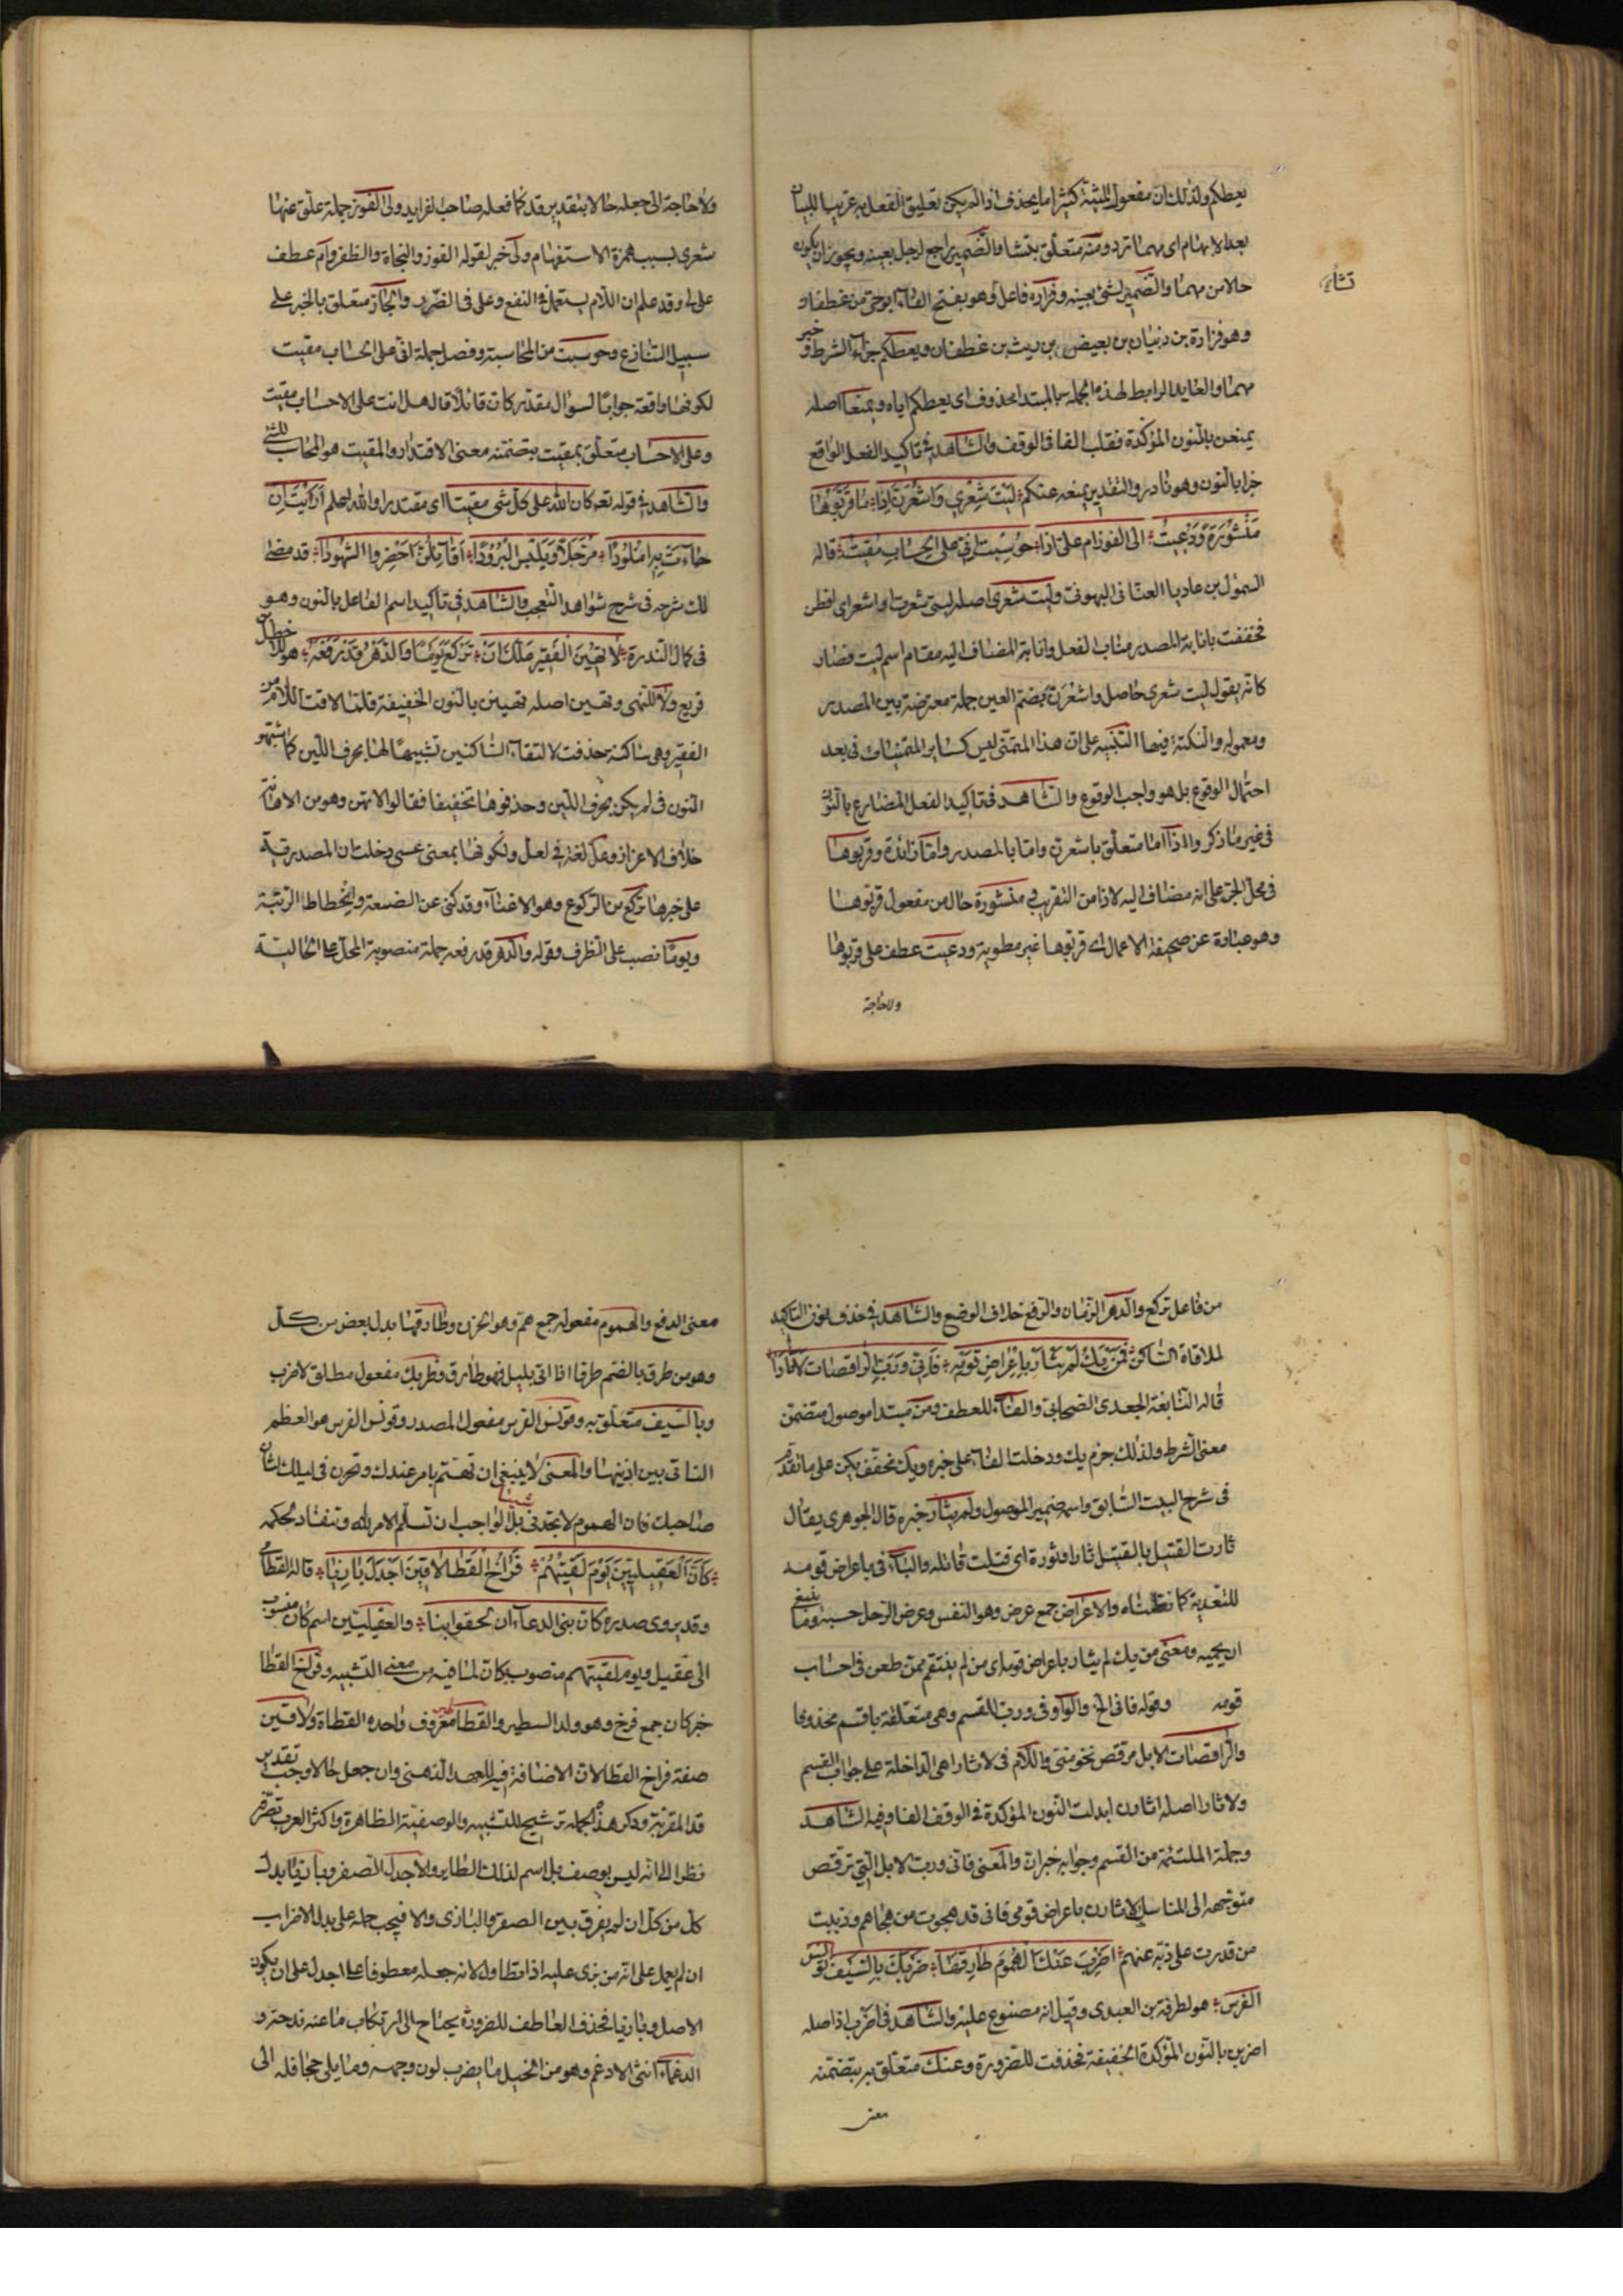 يعطكم ولذلك ان مفعول المشية كثيرا ما يحذف اذا لم يكن تعليق الفعل به غريبا للبيان
بعد الابهام اى مهما ترد ومنه متعلق بتشا والضمير راجع لرجل بعينه ويجوز ان يكون
تشاء
حالا من مهما والضمير لشئ بعينه وفزاره فاعل وهو بفتح الفاء ابو حى من غطفان و
وهو فزارة بن ذبيان بن بغيض بن ريث بن غطفان ويعطكم جزاء الشرط و خبر
مهما والعايد الرابط لهذه الجمله بالمبتدا محذوف اى يعطكم اياه ويمنعا اصله
يمنعن بالنون المؤكدة فقلب الفا فى الوقف والشاهد فى تاكيد الفعل الواقع
جزا بالنون وهو نادر والتقدير يمنعه عنكم لَيْتَ شِعْرِي وَاَشْعُرَنَّ اِذا مَا قَرَّبُوهَا
مَنْشُورَةً وَدُعِيتُ الى الفوز ام عَلىَّ اِذا حُوسِبْتُ اِنّى على الحِسَابِ مُقِيتُ قاله
السمؤل بن عاديا الغسانى اليهودى وليت شعرى اصله ليتنى شعرت او اشعر اى افطن
فخففت بانابة المصدر مناب الفعل وانابة المضاف اليه مقام اسم ليت فصار
كانه يقول ليت شعرى حاصل واشعرن بضم العين جملة معترضة بين المصدر
ومعموله والنكتة فيها التنبيه على ان هذا المتمنى ليس كساير المتمنيات فى بعد
احتمال الوقوع بل هو واجب الوقوع والشاهد فى تاكيد الفعل المضارع بالنون
فى غير ما ذكر واذا اما متعلق باشعرن واما بالمصدر وما زائدة وقربوها
فى محل الجر على انه مضاف اليه لاذا من التقريب منشورة حال من مفعول قربوها
وهو عبارة عن صحيفة الاعمال اى قربوها غير مطوية ودعيت عطف على قربوها
ولا حاجة
ولا حاجة الى جعله حالا بتقدير قد كما فعله صاحب الفرايد والى الفوز جملة علق عنها
شعرى بسبب همزة الاستفهام ولى خبر لقوله الفوز والنجاة والظفر وام عطف
على لى وقد علم ان اللام يستعمل فى النفع وعلى فى الضرر والجار متعلق بالخبر على
سبيل التنازع وحوسبت من المحاسبة وفصل جملة انى على الحساب مقيت
لكونها واقعة جوابا لسؤال مقدر كان قائلا قال هل انت على الاحساب مقيت
وعلى الاحساب متعلق بمقيت بتضمنه معنى الاقتدار والمقيت هو المحاسب للشئ
والشاهد فى قوله تعه كان الله على كل شى مقيتا اى مقتدرا والله اعلم اَرَاَيْتَ اِن
جَاءَتْ بِهِ اُمْلُودًا مُرَجَّلاً وَيَلْبَسُ الْبُرُودًا اَقَائِلُنَّ اَحْضِرُوا الشُّهُودَا قد مضى
لك شرحه فى شرح شواهد التعجب والشاهد فى تاكيد اسم الفاعل بالنون وهو
فى كمال الندرة لا تُهِينَ الْفَقِيرَ عَلَّكَ اَنْ تَرْكَعَ يَوْمًا وَالدَّهْرُ قَدْ رَفَعَهْ هو للاضبط
قريع ولا للنهى وتهين اصله تهينن بالنون الخفيفة فلما لاقت اللام من
الفقير وهى ساكنة حذفت لالتقاء الساكنين تشبيها لها بحرف اللين كما شبهوا
النون فى لم يكن بحرف اللين وحذفوها تخفيفا فقالوا لا تهن وهو من الاهانة
خلاف الاعزاز وعل لغة فى لعل ولكونها بمعنى عسى دخلت ان المصدرية
على خبرها تركع من الركوع وهو الانحناء وقد كنى عن الضعة وانحطاط الرتبة
ويوما نصب على الظرف وقوله والدهر قد رفعه جملة منصوبة المحل على الحالية
من فاعل تركع والدهر الزمان والرفع خلاف الوضع والشاهد فى حذف نون التاكيد
لملاقاة الساكن فَمَنْ يَكُ لَمْ يَثْأَرْ بِاَعْرَاضِ قَوْمِهِ فَاِنّى وَرَبِّ الرَّاقِصَات لَاَثْأَرَا
قاله النابغة الجعدى الصحابى والفاء للعطف ومن مبتدا موصول متضمن
معنى الشرط ولذلك جزم يك ودخلت الفاء على خبره ويك مخفف يكن على ما تقدم
فى شرح البيت السابق واسمه ضمير الموصول ولم يثأر خبره قال الجوهرى يقال
ثارت القتيل بالقتيل ثارا وثورة اى قتلت قاتله والباء فى باعراض قومه
للتعدية كما نظمناه والاعراض جمع عرض وهو النفس وعرض الرجل حسبه وما ينبغى
ان يحميه ومعنى من يك لم يثار باعراض قومه اى من لم ينتقم ممن طعن فى احساب
قومه وقوله فانى الخ والواو فى ورب للقسم وهى متعلقة باقسم محذوفا
والراقصات الابل ترقص نحو منى واللام فى لاثارا هى الداخلة على جواب القسم
ولاثارا اصله اثارن ابدلت النون المؤكدة فى الوقف الفا وفيه الشاهد
وجملة الملتئمة من القسم وجوابه خبر ان والمعنى فانى ورب الابل التى ترقص
متوجهه الى المناسك لاثارن باعراض قومى فانى قد هجوت من هجاهم وذببت
من قدرت على ذبه عنهم اضْرِبَ عَنْكَ الْهُمُومَ طَارِقَهَا ضَرْبَكَ بِالسَّيْفِ قَوْنَسَ
الفَرَسِ هو لطرفة بن العبدى وقيل انه مصنوع عليه والشاهد فى اضرب اذ اصله
اضربن بالنون المؤكدة الخفيفة فحذفت للضرورة وعنك متعلق به بتضمنه
معنى
معنى الدفع والهموم مفعوله جمع هم وهو الحزن وطارقها بدل بعض من كل
وهو من طرق بالضم طرقا اذا اتى بليل فهو طارق وضربك مفعول مطلق لاضرب
وبالسيف متعلق به وقونس الفرس مفعول المصدر وقونس الفرس هو العظم
الناتى بين اذنيها والمعنى لا ينبغى ان تهتم بامر عندك وتحزن فى ليلك لشان
صاحبك فان الهموم لا تجدى شيئا بل الواجب ان تسلم الامر لله وتنقاد لحكمه
كَاَنَّ الْعُقَيْلِيِّينَ يَوْمَ لَقِيتُهُمْ فِرَاخُ الْقَطَا لَاقَيْنَ اَجْدَلَ بَازِيَا قاله القطامى
وقد يروى صدره كان بنى الدعاء ان لحقوا بنا والعقيليين اسم كان منسوب
الى عقيل ويوم لقيتهم منصوب بكان لما فيه من معنى التشبيه وفراخ القطا
خبر كان جمع فرخ وهو ولد الطير والقطا طير معروف واحده القطاة ولاقين
صفة فراخ القطا لان الاضافة فيه للعهد الذهنى وان جعل حالا وجب تقدير
قد المقربة وذكر هذه الجملة ترشيح للتشبيه والوصفية الظاهرة واكثر العرب تصرفه
نظرا الى انه ليس بوصف بل اسم لذلك الطاير والاجدل الصقر وبازيا بدل
كل من كل ان لم يفرق بين الصقر والبازى والا فيجب حمله على بدل الاضراب
ان لم يعمل على انه من بزى عليه اذا تطاول لانه جعله معطوفا على اجدل على ان يكون
الاصل وبازيا فحذف العاطف للضرورة يحتاج الى ارتكاب ما عنه ندحة و
الدغماء انثى الادغم وهو من الخيل ما يضرب لون وجهه وما يلى جحافله الى